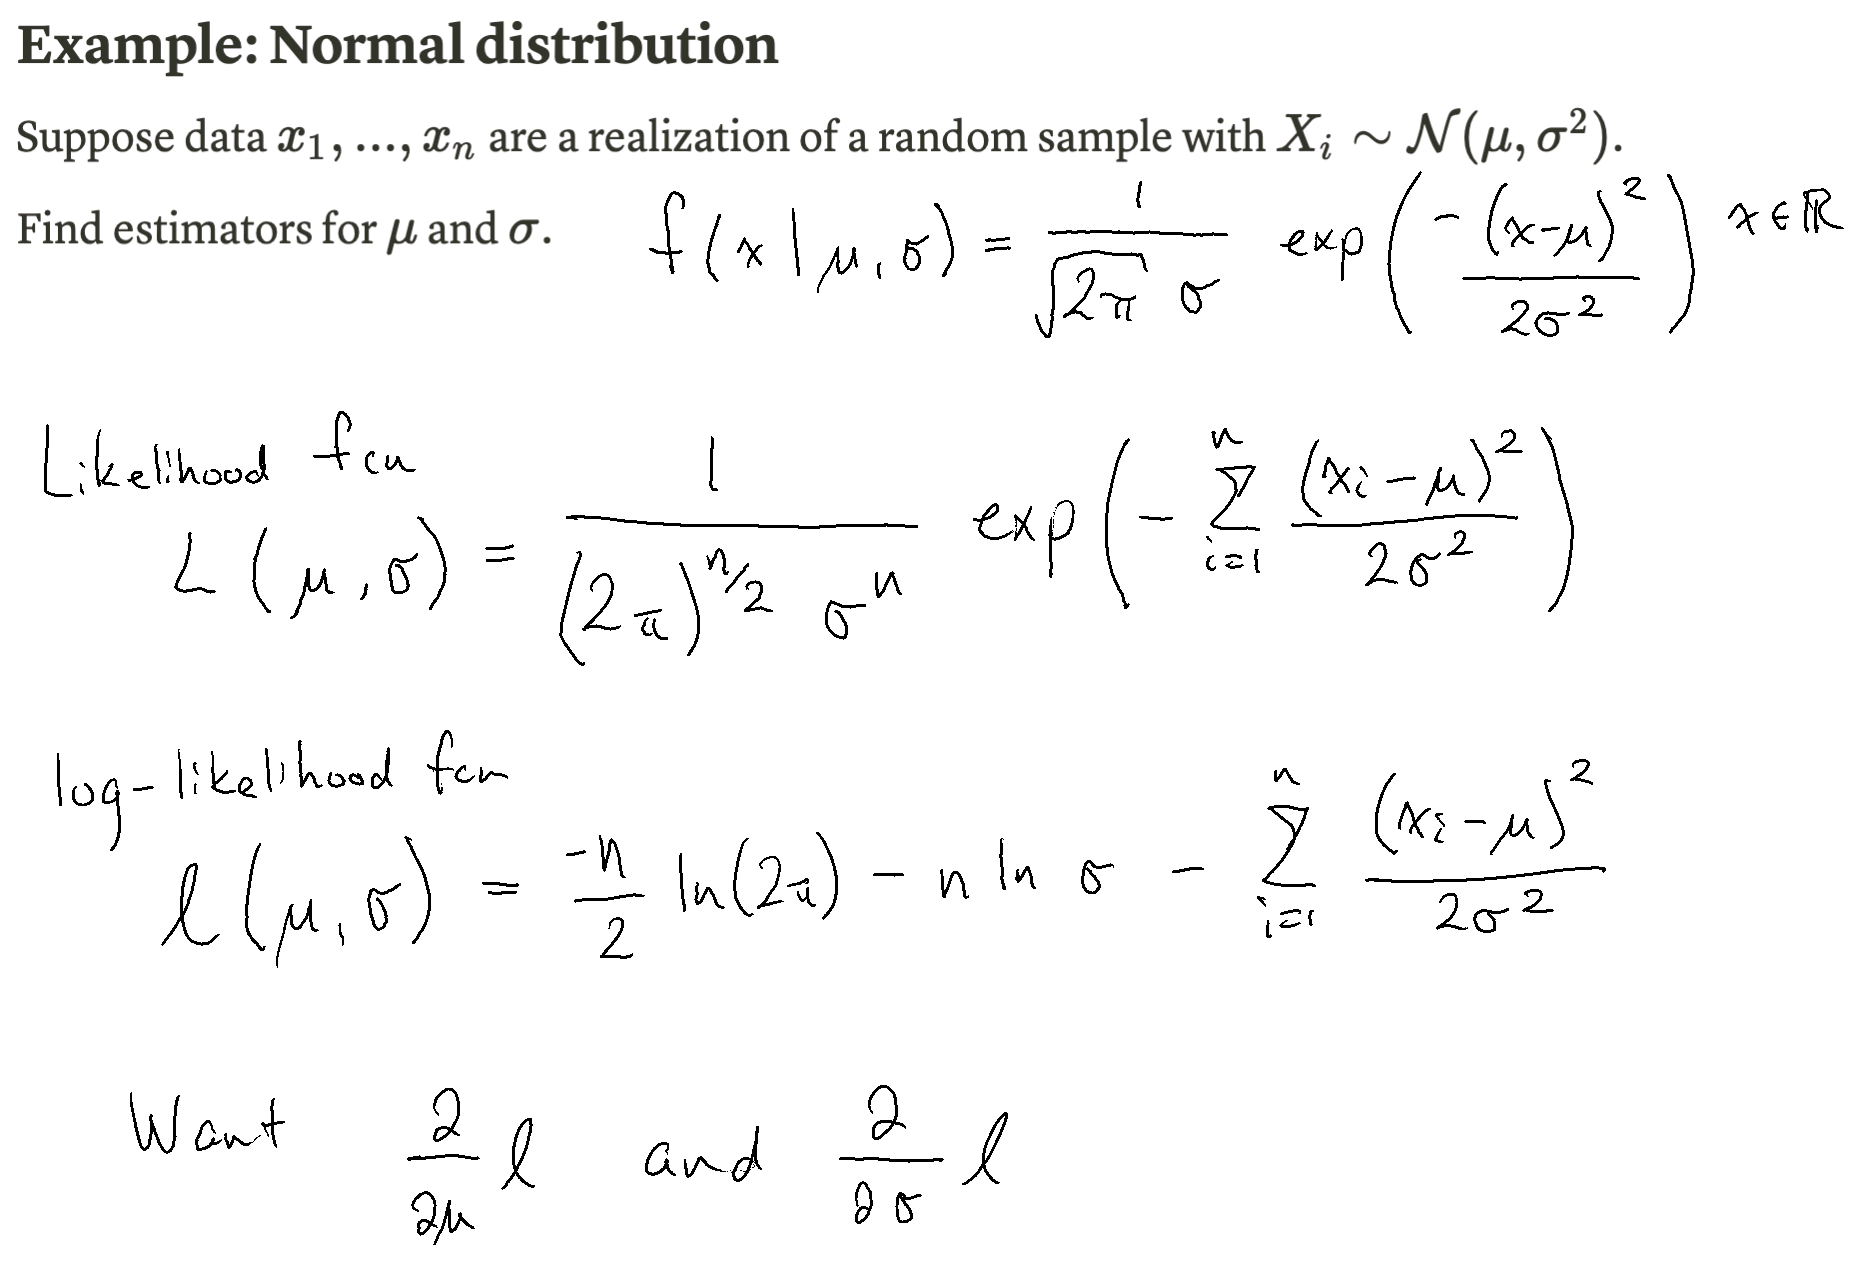 Example: Normal distribution
Suppose data x₁, ..., xₙ are a realization of a random sample with Xᵢ ∼ 𝒩(μ, σ²).
Find estimators for μ and σ. f(x | μ, σ) = 1/(√(2π) σ) exp(−(x−μ)²/(2σ²)) x ∈ ℝ
Likelihood fcn
L(μ, σ) = 1/((2π)^(n/2) σⁿ) exp(− ∑_{i=1}^{n} (xᵢ−μ)²/(2σ²))
log-likelihood fcn
ℓ(μ, σ) = −n/2 ln(2π) − n ln σ − ∑_{i=1}^{n} (xᵢ−μ)²/(2σ²)
Want ∂/∂μ ℓ and ∂/∂σ ℓ